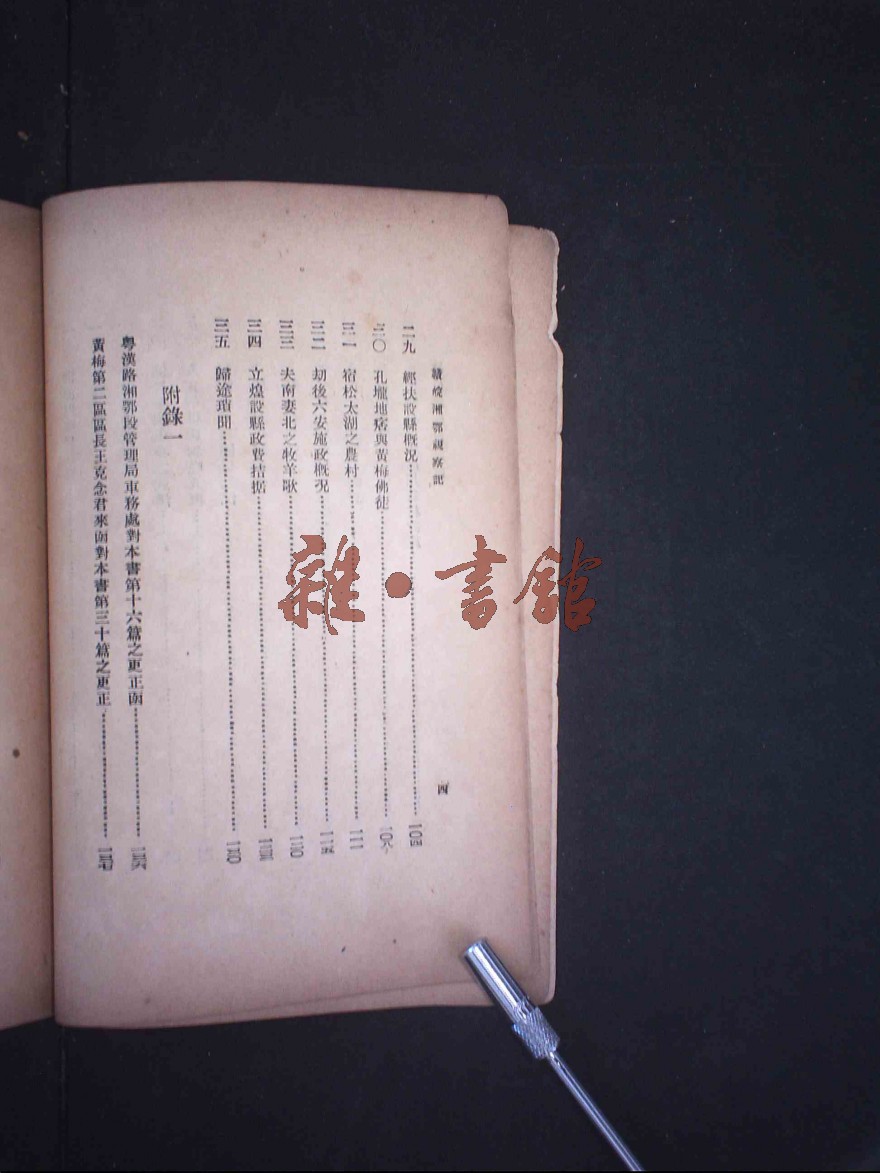 贛皖湘鄂視察記
四
二九 經扶設縣概況 一〇四
三〇 孔壠地痞與黃梅佛徒 一〇八
三一 宿松太湖之農村 一一一
三二 劫後六安施政概況 一一五
三三 夫南妻北之牧羊歌 一二〇
三四 立煌設縣政費拮据
三五 歸途瑣聞 一三〇
附錄一
粵漢路湘鄂段管理局車務處對本書第十六篇之更正函 一三六
黃梅第二區區長王克念君來函對本書第三十篇之更正 一三七
雜·書館